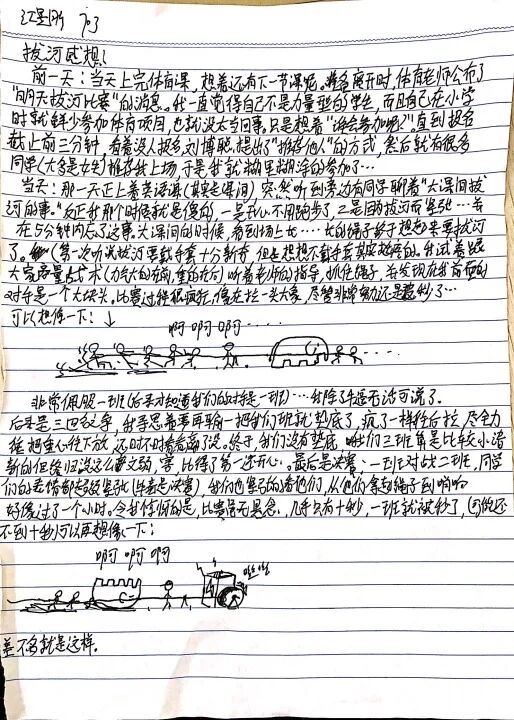 江 703
拔河感想!
前一天:当天上完体育课,想着还有下一节课呢,准备离开时,体育老师公布了
"明天拔河比赛"的消息。我一直觉得自己不是力量型的学生,而且自己在小学
时就鲜少参加体育项目,也就没太当回事。只是想着"谁会参加呢?"直到报名
截止前三分钟,看着没人报名刘博聪,提出了"推荐他人"的方式,然后就有很多
同学(大多是女生)推荐我上场,于是我就糊里糊涂的参加了…
当天:那一天正上着英语课(其实是课间)突然听到旁边有同学聊着"大课间拔
河的事。"反正我那个时候就是傻的,一是开心不用跑步了,二是因拔河而紧张…我
在5分钟内忘了这事。大课间的时候,看到场上长…长的绳子终于想起来要拔河
了。(第一次听说拔河要戴手套十分新奇,但是想想不戴手套其实挺疼的。我试着
大 质量占术(力气大的在前,重的在后)听着老师的指导,抓住绳子,并发现在我前面的
对手是一个大块头,比赛过程很疯狂,像在拉一头大象,尽管非常努力还是被秒了…
可以想像一下:↓
啊啊啊…
非常佩服一班(后来才知道我们的对手是一班)…我除了手疼无话可说了。
后来是三四名之争,我寻思着要再输一把我们班就垫底了,疯了一样往后拉,尽全力
往把重心往下放,还时不时看看赢了没。终于,我们没有垫底,咱们三班算是比较小清
新的但总归没这么文弱,害,比得了第一还开心。最后是决赛、一班对战二班,同学
们的表情都超级紧张(毕竟是决赛),我们也紧张的看他们,从他们拿起绳子到响哨
好像过了一个小时。令我惊讶的是,比赛毫无悬念,几乎只有十秒,一班就被秒了,(可能还
不到十秒)可以再想像一下:
啊 啊 啊
差不多就是这样.